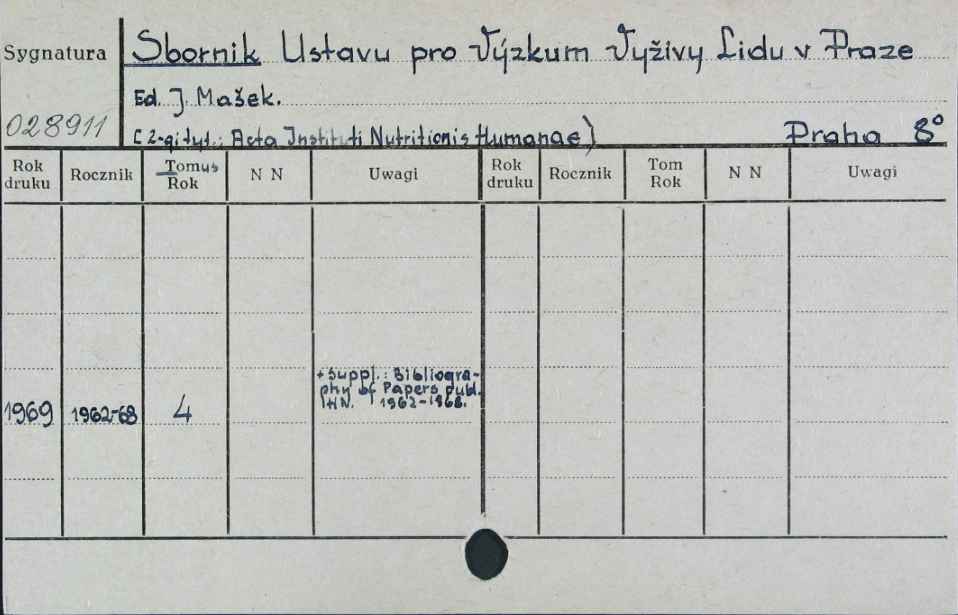 Sygnatura
Sbornik Ustavu pro Výzkum Vyživy Lidu v Praze
Ed. J. Mašek.
028911
[2-gi tyt.: Acta Instituti Nutritionis Humanae) Praha 8°
Rok druku Rocznik Tomus Rok N N Uwagi Rok druku Rocznik Tom Rok N N Uwagi
+ Suppl.: Bibliogra-
phy of Papers publ.
IHN. 1962-1968.
1969 1962-68 4